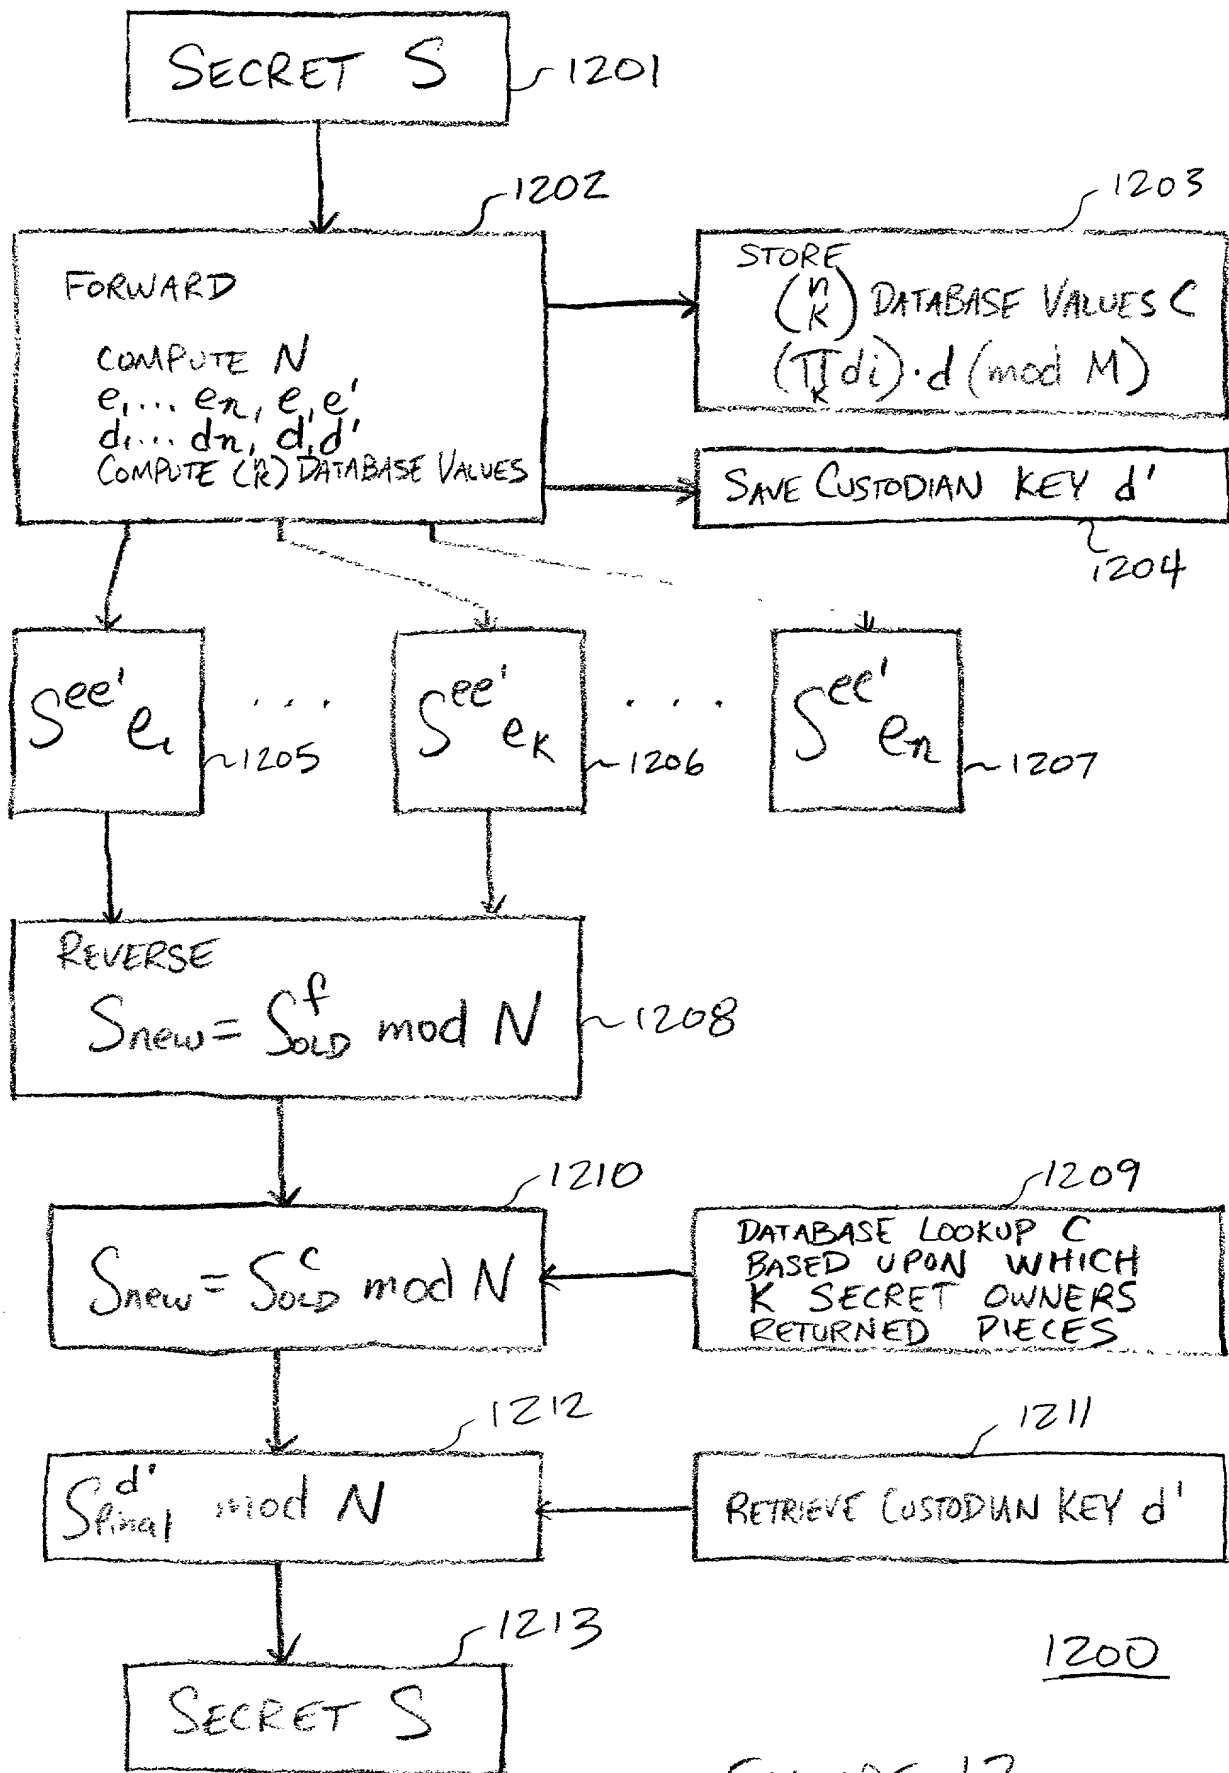 SECRET S
1201
1202
FORWARD
COMPUTE N
e₁... eₙ, e, e'
d₁... dₙ, d, d'
COMPUTE (ⁿₖ) DATABASE VALUES
1203
STORE
(ⁿₖ) DATABASE VALUES C
(∏ₖ dᵢ)·d (mod M)
SAVE CUSTODIAN KEY d'
1204
S^ee' e₁
1205
. . .
S^ee' eₖ
1206
. . .
S^ee' eₙ
1207
REVERSE
Snew = S^f_OLD mod N
1208
1210
Snew = S^c_OLD mod N
1209
DATABASE LOOKUP C
BASED UPON WHICH
K SECRET OWNERS
RETURNED PIECES
1212
S^d'_final mod N
1211
RETRIEVE CUSTODIAN KEY d'
1213
SECRET S
1200